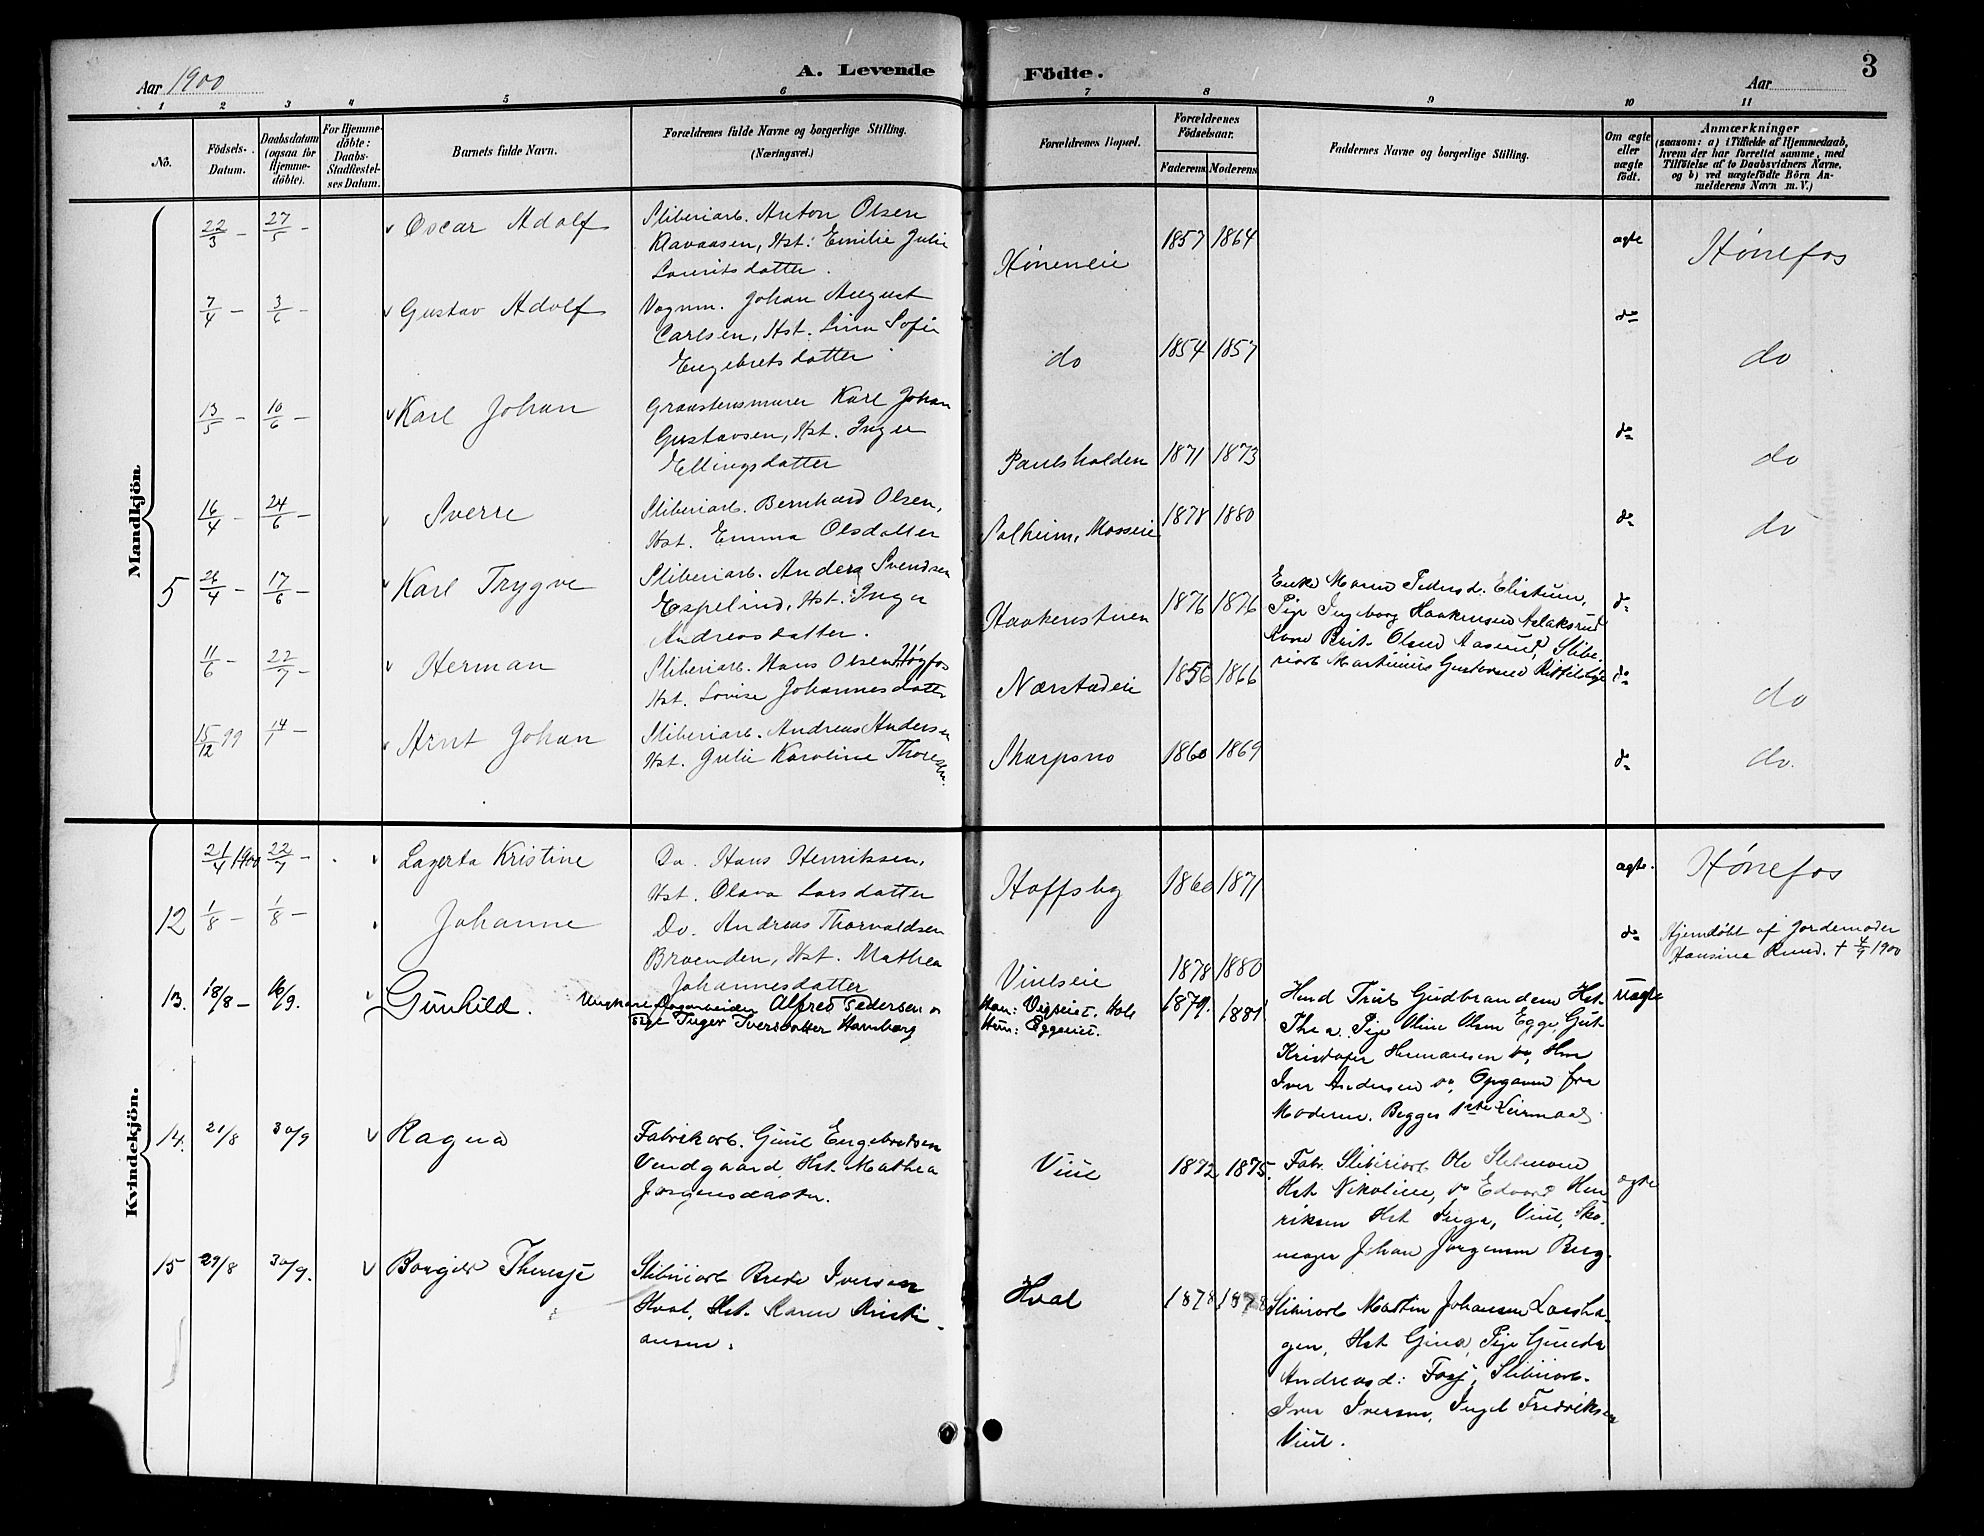 Aar 1900
A. Levende Födte.
Aar
3
1 2 3 4 5 6 7 8 9 10 11
No.
Födsels-Datum.
Daabsdatum (ogsaa for Hjemme-döbte).
For Hjemme-döbte: Daabs-Stadfestel-ses Datum.
Barnets fulde Navn.
Forældrenes fulde Navne og borgerlige Stilling. (Næringsvei.)
Forældrenes Bopæl.
Forældrenes Födselsaar.
Faderens Moderens
Faddernes Navne og borgerlige Stilling.
Om ægte eller uægte födt.
Anmærkninger
(saasom: a) i Tilfælde af Hjemmedaab,
hvem der har forrettet samme, med
Tilföielse af to Daabsvidners Navne,
og b) ved uægtefödte Börn An-
melderens Navn m. V.)
Mandkjön
22/3 - 27/5 - Oscar Adolf
Sliberiarb. Anton Olsen
Klavaasen, Hst: Emilie Julie
Lauritsdatter.
Høneneie 1857 1864 ægte Hønefos
7/4 - 3/6 - Gustav Adolf
Vognm. Johan August
Carlsen, Hst. Lina Sofie
Engebretsdatter
do 1854 1857 do do
13/5 - 10/6 - Karl Johan
Graastensmurer Karl Johan
Gustavsen, Hst. Inga
Ellingsdatter
Paulshalden 1871 1873 do do
16/4 - 24/6 - Sverre
Sliberiarb. Bernhard Olsen,
Hst. Emma Olsdatter
Solheim, Mosseie 1878 1880 do do
5 26/4 - 17/6 - Karl Trygve
Sliberiarb. Anders Svendsen
Espelind, Hst. Inga
Andreasdatter.
Haakenstuen 1876 1876
Enke Maren Pedersd.
Pige Ingeborg Haakensen Aslaksrud
11/6 - 22/7 - Herman
Sliberiarb. Hans Olsen Høgfos
Hst. Lovise Johannesdatter
Nærstadeie 1856 1866 do do
15/12 99 Arnt Johan
Sliberiarb. Andreas Andersen
Hst. Julie Karoline Thoresdtr.
Skarpsno 1860 1869 do do.
Kvindekjön.
21/4 1900 22/7 - Lagerta Kristine
Do. Hans Henriksen,
Hst. Olava Larsdatter
Hoffsby 1860 1871 ægte. Hønefos
12 1/8 - 1/8 - Johanne
Do. Andreas Thorvaldsen
Braenden, Hst. Mathea
Johannesdatter
Viulseie 1878 1880 do
Hjemdøbt af Jordemoder
Hansina Rund. + 4/9 1900
13. 18/8 - 16/9. Gunhild.
Ungkare Dagarbeider Alfred Pedersen og
Pige Inger Iversdatter Hamborg
Han: Vigseie, Hole
Hun: Eggeeie.
1879. 1881 uægte
Hmd Truls Gudbrandsen Hst.
Thea. Pige Oline Olsen Egge, Gut
Kristofer Hermansen do, Hm
Iver Andersen do, Opgaven fra
Moderen. Begges 1ste Leirmaal.
14. 21/8 30/9 Ragna
Fabrikarb. Gjuul Engebretsen
Vendgaard, Hst. Mathea
Jørgensdatter.
Viul 1872 1875. ægte
Fab. Sliberiarb. Ole
Hst Nikoline, do Edvard Hen-
riksen Hst Inga, Viul, Sko-
mager Johan Jørgensen Berg.
15 29/8 30/9. Borgild Theresje
Sliberiarb Brede Iversen
Hval, Hst. Karen Kristi-
ansen.
Hval 1878 1878
Sliberiarb Martin Johansen Laesha-
gen, Hst Gina, Pige Gunda
Andreasd: Foss, Sliberiarb.
Iver Iversen, Fredriksen
Viul.